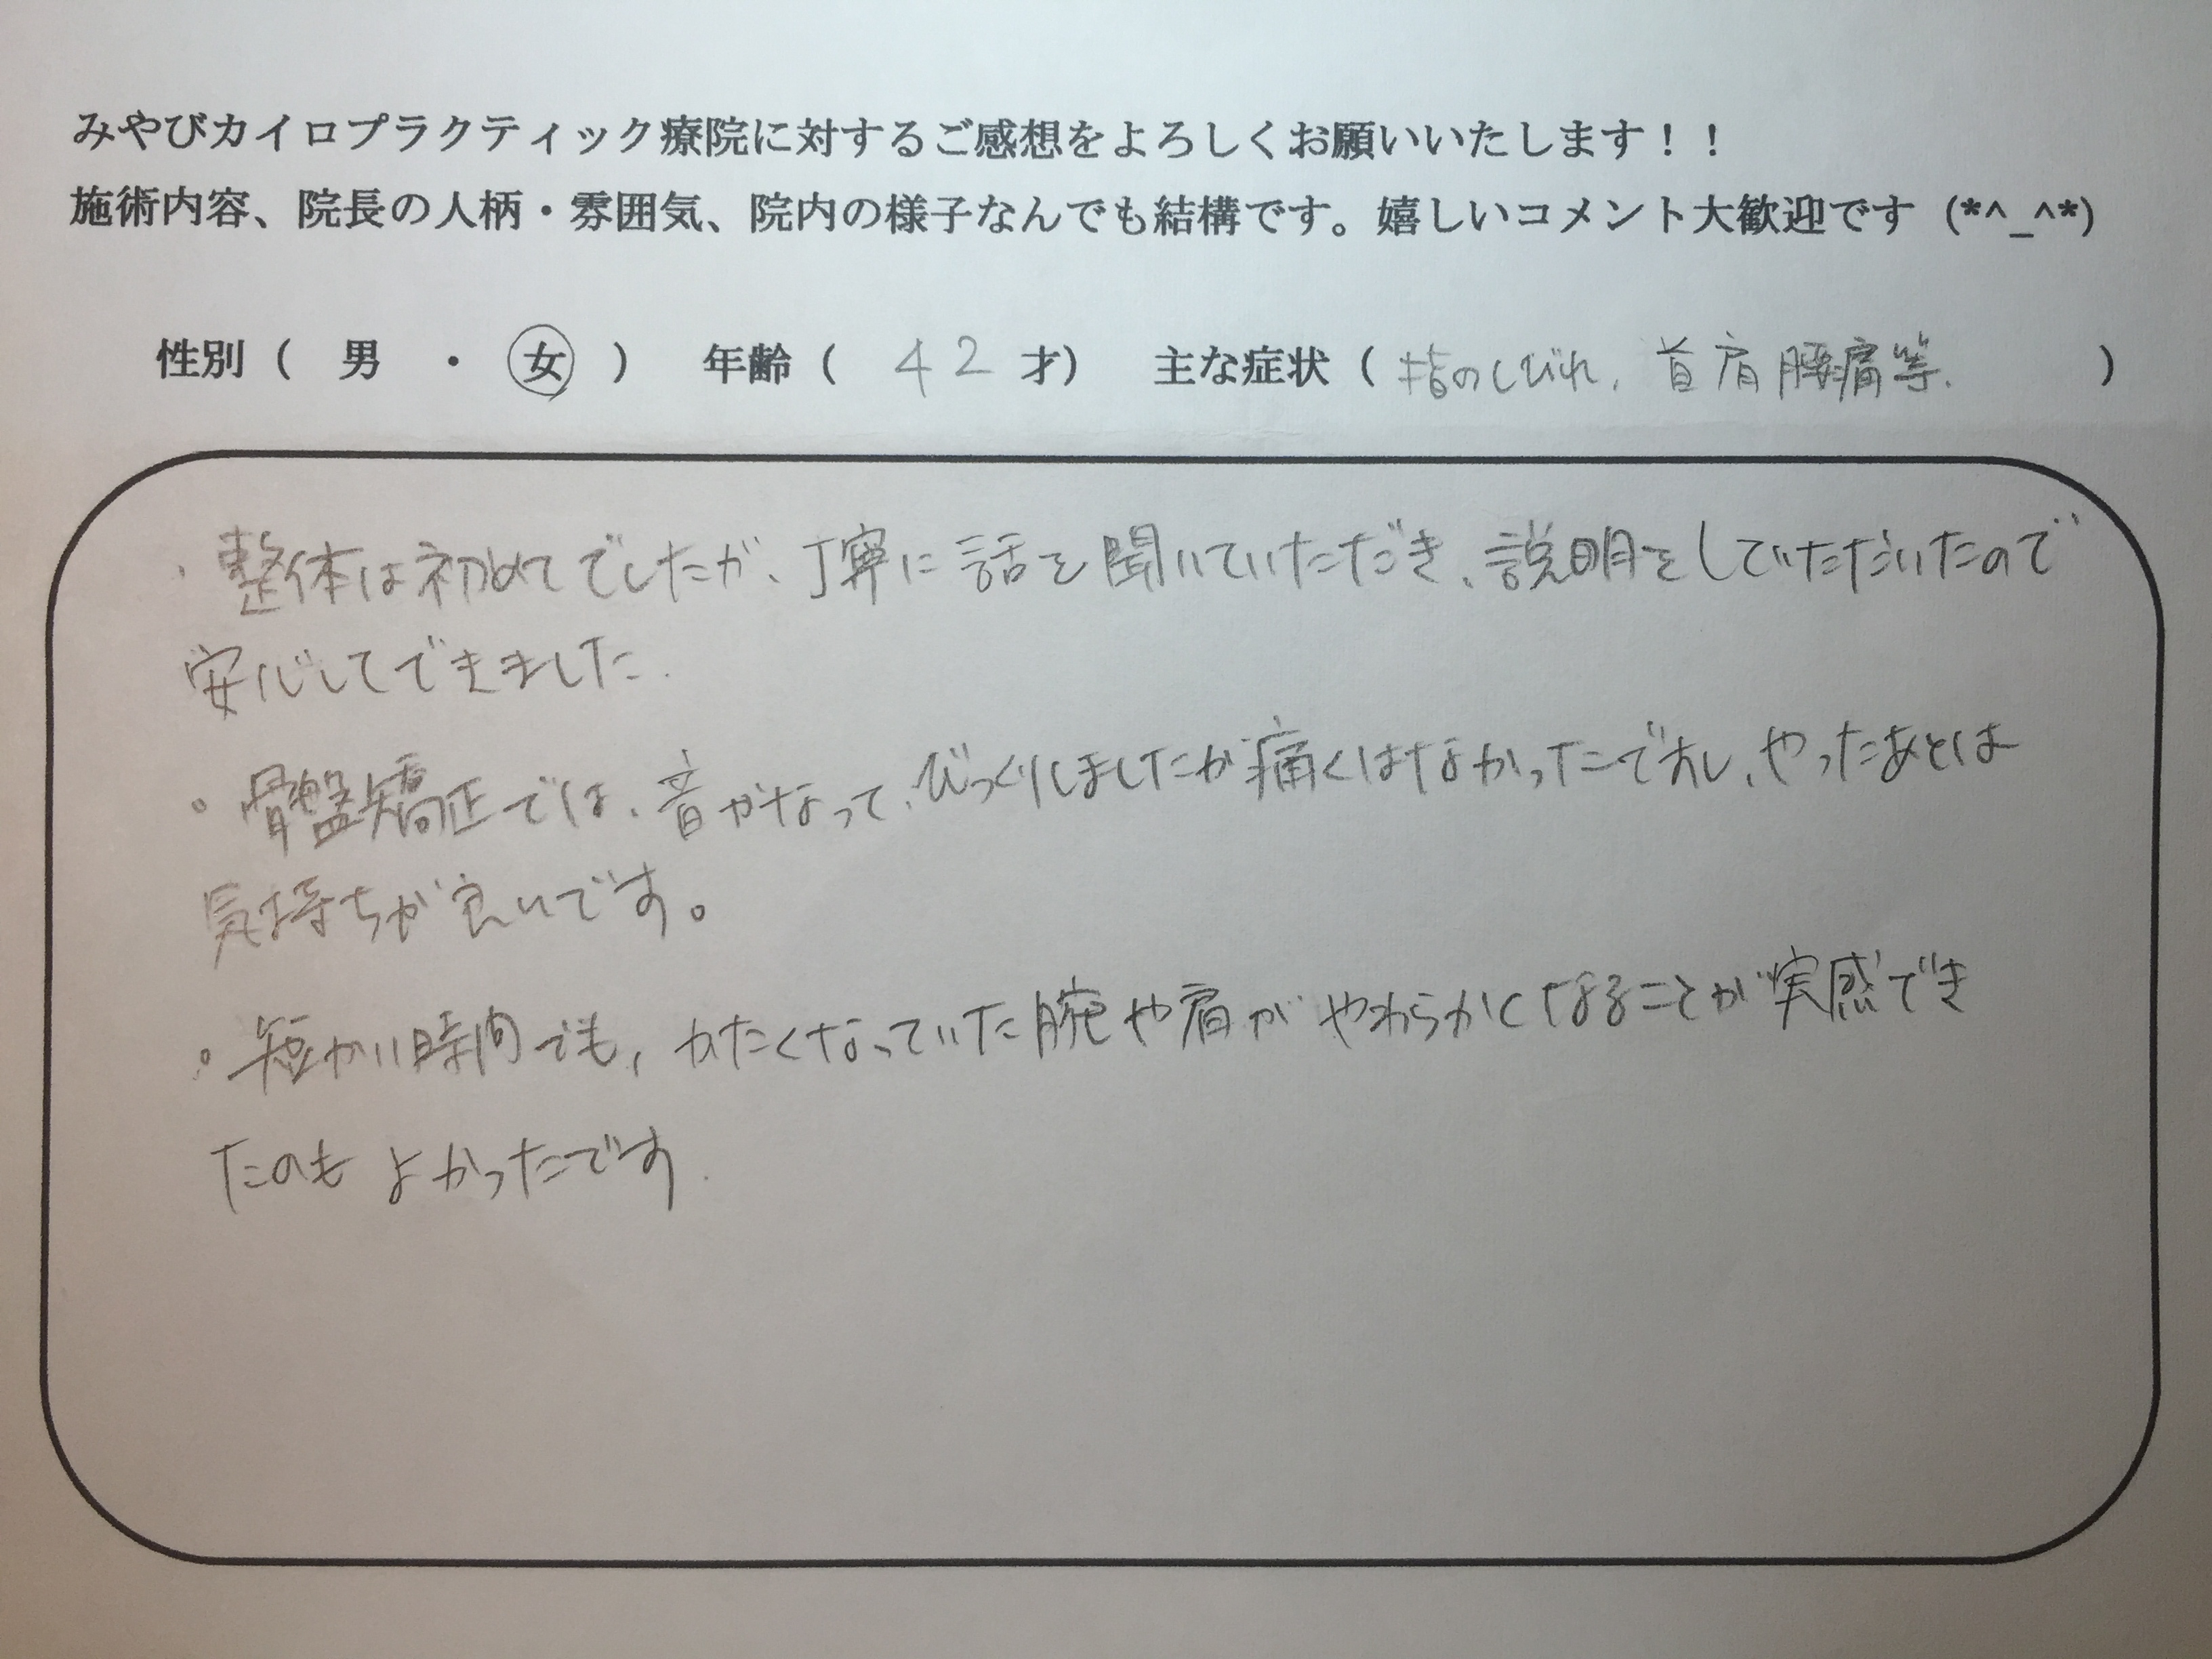 みやびカイロプラクティック療院に対するご感想をよろしくお願いいたします！！
施術内容、院長の人柄・雰囲気、院内の様子なんでも結構です。嬉しいコメント大歓迎です (*^_^*)
性別（ 男 ・ 女 ） 年齢（ 42 才） 主な症状（ 指のしびれ, 首肩腰痛等. ）
・整体は初めてでしたが、丁寧に話を聞いていただき、説明をしていただいたので
安心してできました.
・骨盤矯正では、音がなって、びっくりしましたが痛くはなかったですし、やったあとは
気持ちが良いです。
・短かい時間でも, かたくなっていた腕や肩がやわらかくなることが実感でき
たのもよかったです.